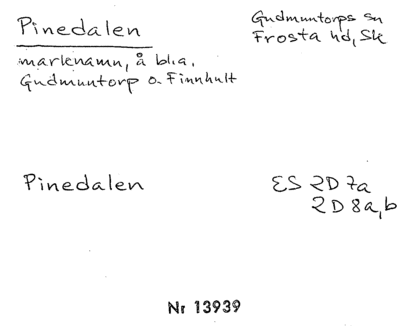 Pinedalen
Gudmuntorps sn
Frosta hd, Sk
marknamn, å bl.a.
Gudmuntorp o. Finnhult
Pinedalen
ES 2D 7a
2D 8a, b
Nr 13939